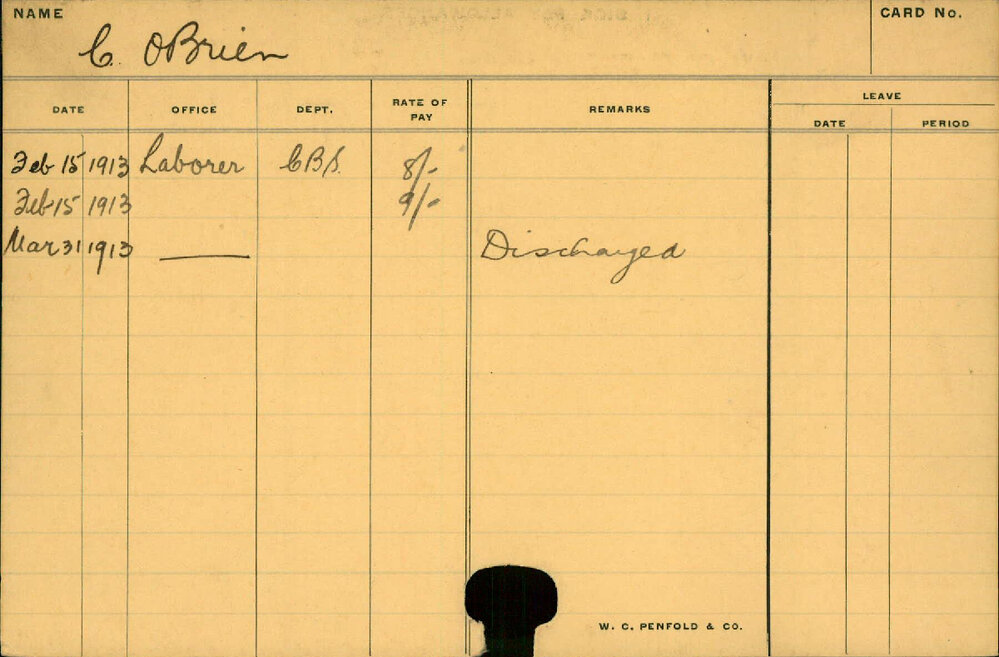 NAME
C. OBrien
CARD No.
DATE OFFICE DEPT. RATE OF PAY REMARKS LEAVE
DATE PERIOD
Feb 15 1913 Laborer C.B.S. 8/-
Feb 15 1913 9/-
Mar 31 1913 — Discharged
W. C. PENFOLD & CO.